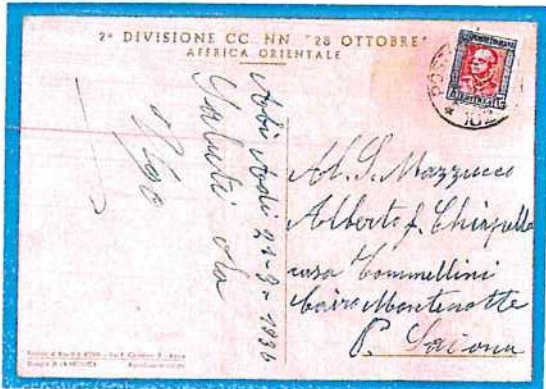 2ª DIVISIONE CC. NN. "28 OTTOBRE"
AFFRICA ORIENTALE
Abi Addi 21-9-1936
Saluti da
POS
102
ERITREA
Al. S. Mazzucco
Alberto f. Chiapella
casa Tommellini
Cairo Montenotte
P. Savona